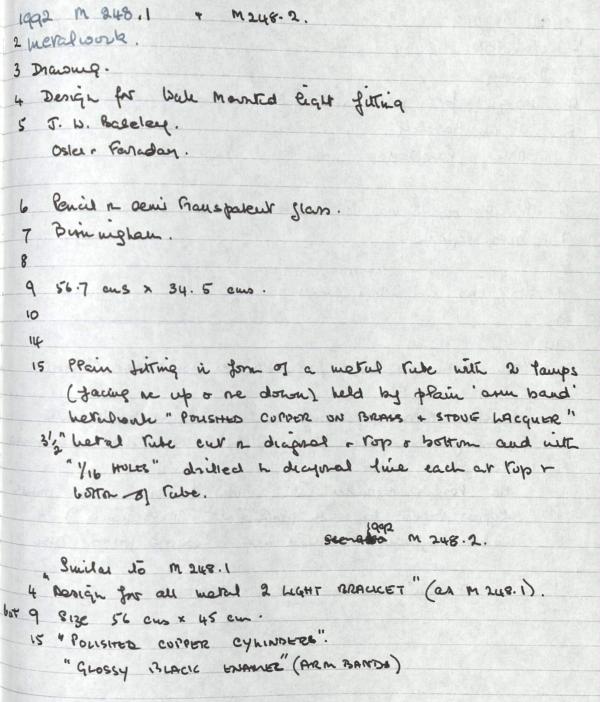 1992 M 248.1 + M248.2.
2 metalwork.
3 Drawing.
4 Design for Wall Mounted light fitting
5 J. W. Baseley.
Osler Faraday.
6 Pencil on semi transparent glass.
7 Birmingham.
8
9 56.7 cms x 34.5 cms.
10
14
15 Plain fitting in form of a metal tube with 2 lamps
(facing one up & one down) held by plain 'arm band'
metalwork "POLISHED COPPER ON BRASS + STOVE LACQUER"
3½" metal tube cut on diagonal + top & bottom and with
"1/16 HOLES" drilled in diagonal line each at top +
bottom of tube.
1992 M 248.2.
Similar to M 248.1
4 "Design for all metal 2 LIGHT BRACKET" (as M 248.1).
but 9 SIZE 56 cms x 45 cm.
15 "POLISHED COPPER CYLINDERS".
"GLOSSY BLACK ENAMEL" (ARM BANDS)